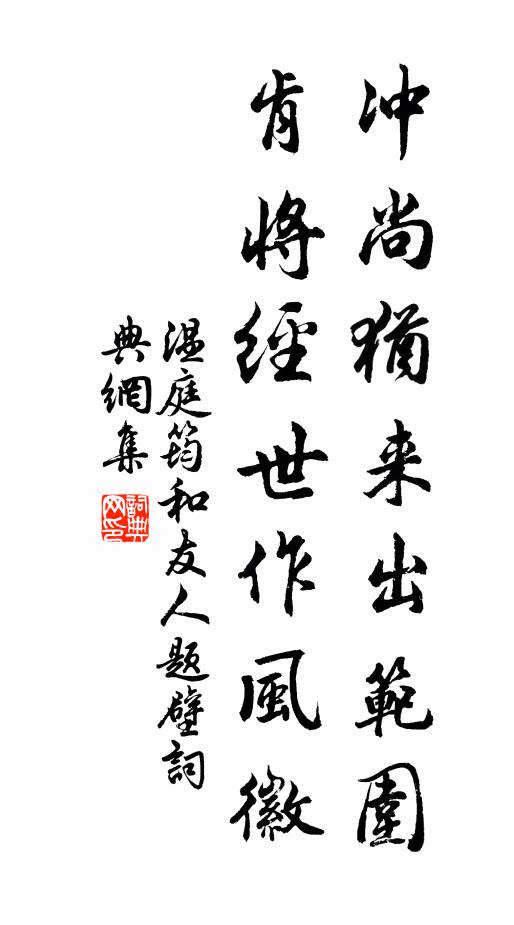 冲尚猶来出範圍
肯將經世作風徽
温庭筠和友人題壁詞
典網集
詞典網印